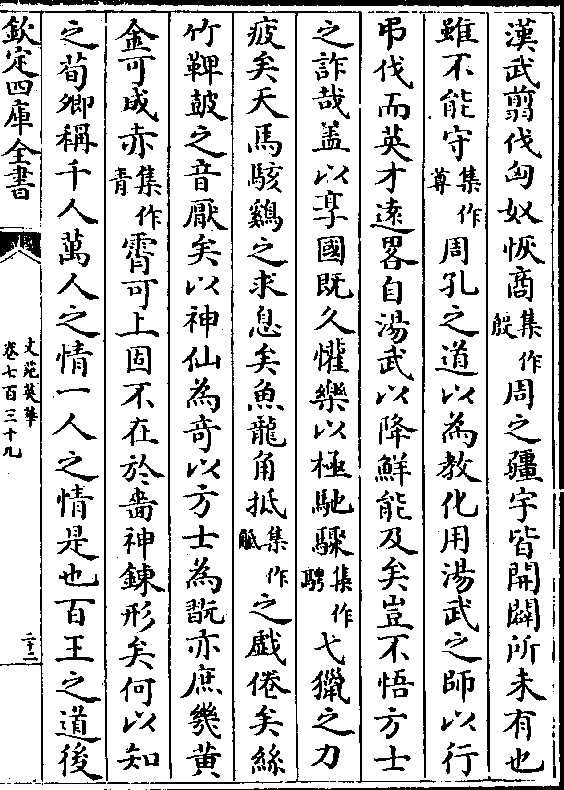 漢武翦伐匈奴恢商集作殷周之疆宇皆開闢所未有也
雖不能守集作尊周孔之道以為教化用湯武之師以行
弔伐而英才遠畧自湯武以降鮮能及矣豈不悟方士
之詐哉盖以享國既久懽樂以極馳驟集作騁弋獵之力
疲矣天馬駭鷄之求息矣魚龍角抵集作觝之戲倦矣絲
竹鞞鼓之音厭矣以神仙為奇以方士為翫亦庶幾黄
金可成亦集作青霄可上固不在於嗇神錬形矣何以知
之荀卿稱千人萬人之情一人之情是也百王之道後
欽定四庫全書
文苑英華
卷七百三十九
二十二